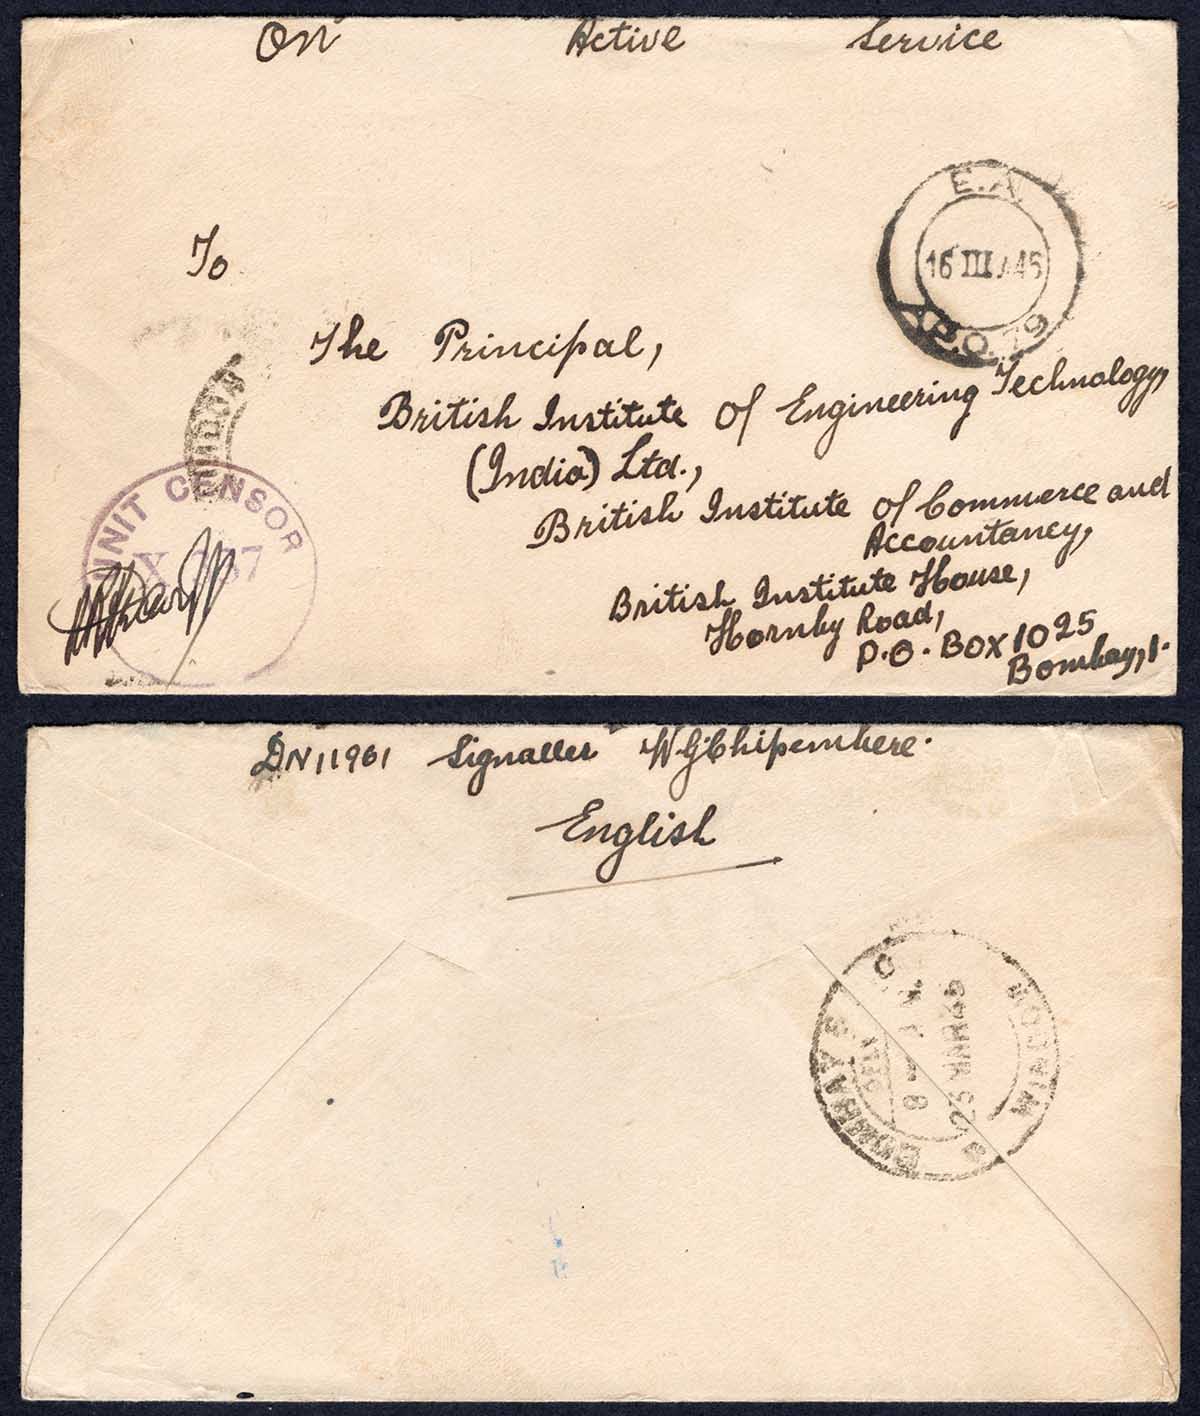 On Active Service
E.A
16 III 45
A.P.O. 79
To
The Principal,
British Institute of Engineering Technology,
(India) Ltd.,
British Institute of Commerce and
Accountancy,
British Institute House,
Hornby Road,
P.O. BOX 1025
Bombay, 1.
UNIT CENSOR
DN11961 Signaller W.G. Chipembere.
English
BOMBAY
DELY
23 MAR 45